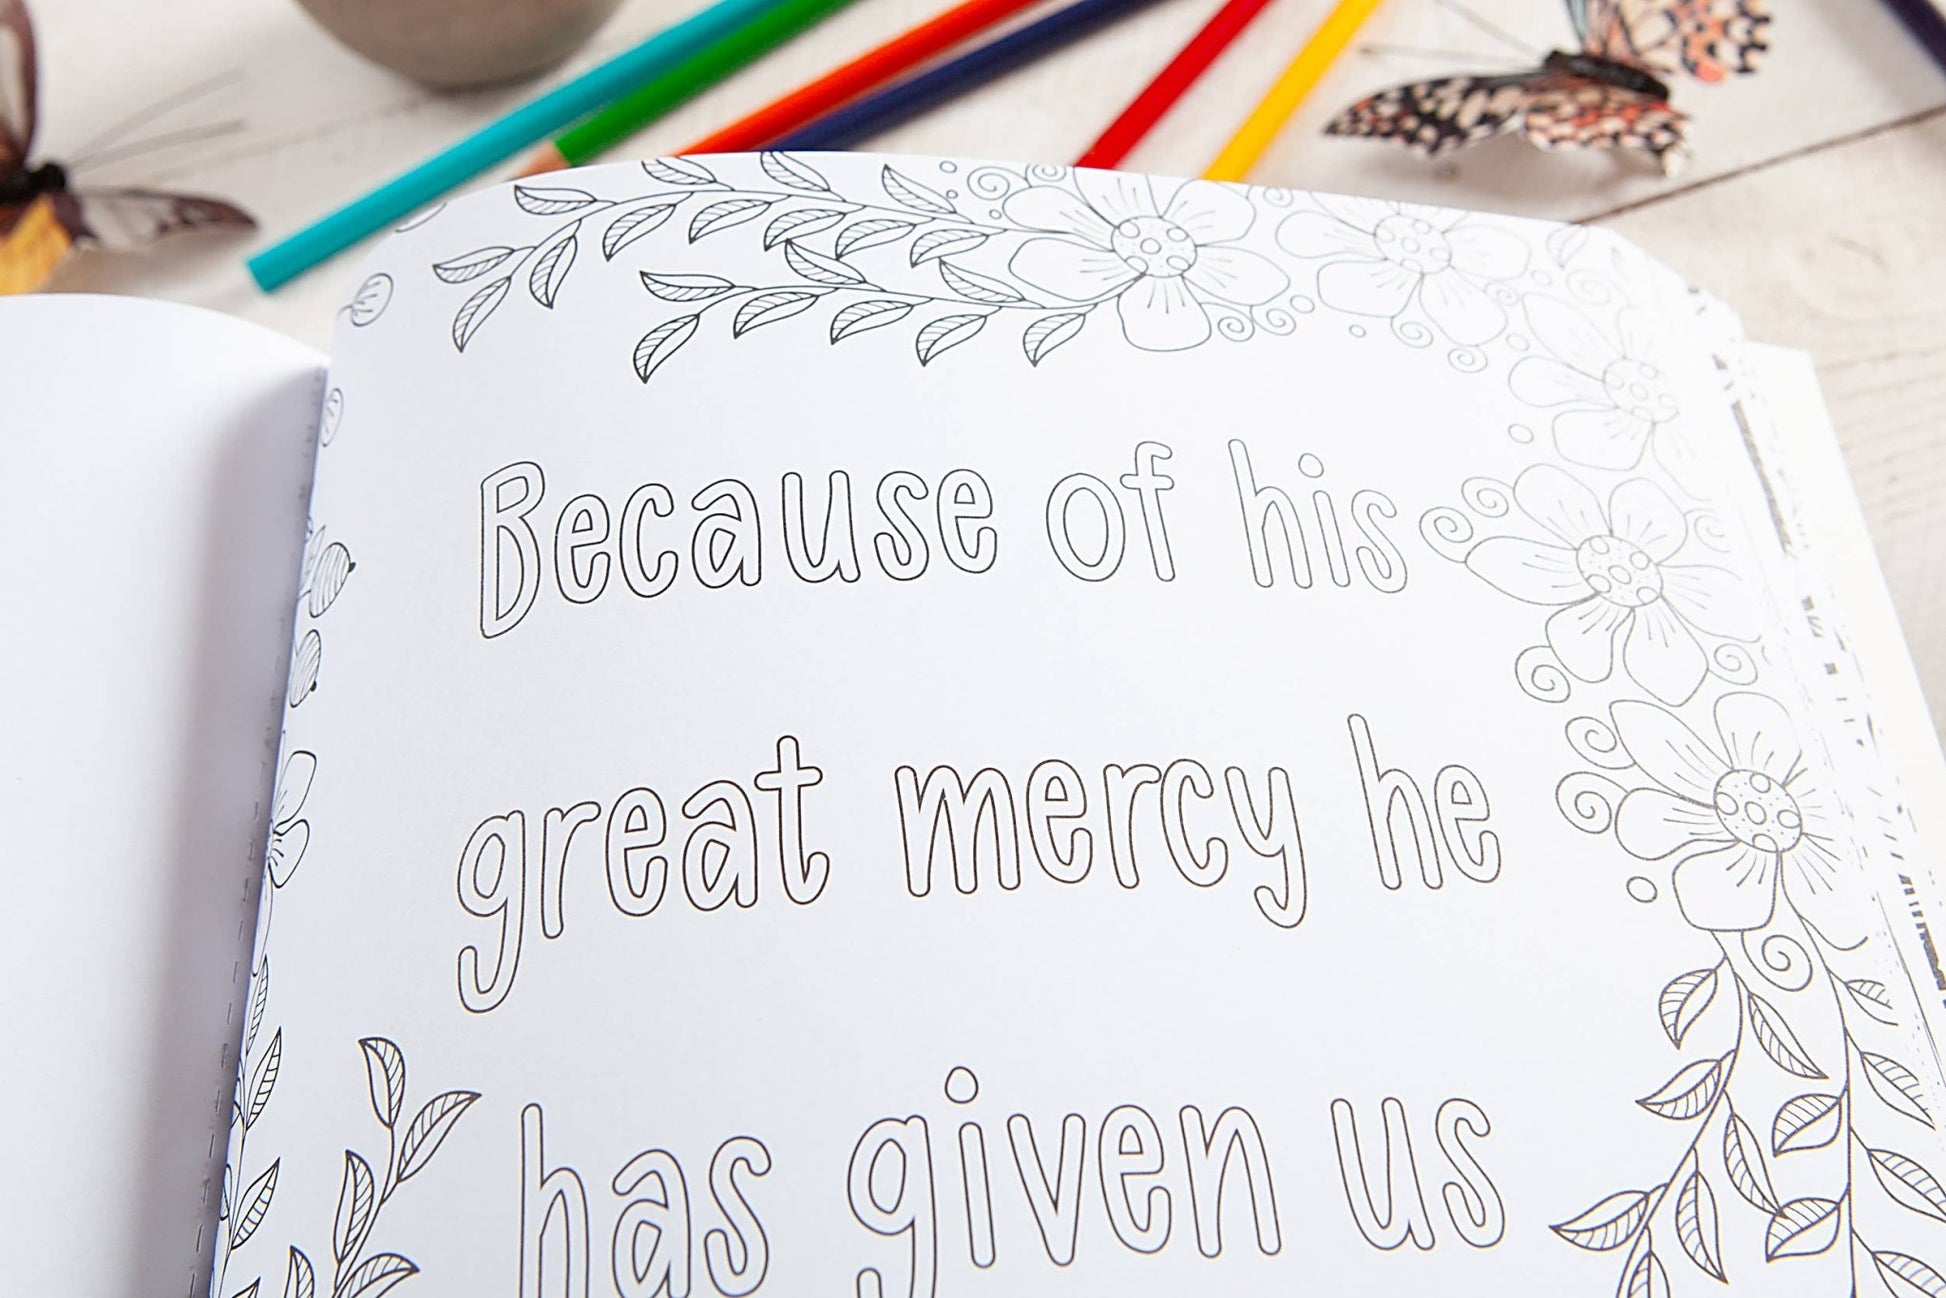 Because of his
great mercy he
has given us